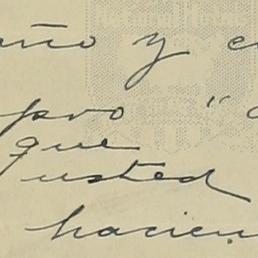 año y e
pro "
que
usted
hacien